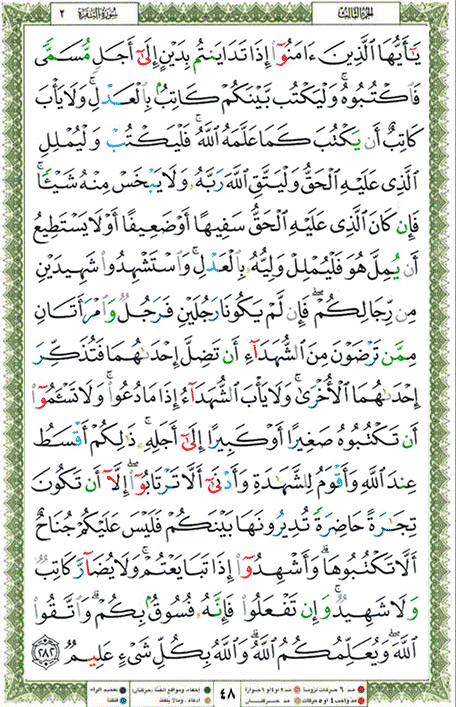 الجزء الثالث سورة البقرة ٢
يَـٰٓأَيُّهَا ٱلَّذِينَ ءَامَنُوٓا۟ إِذَا تَدَايَنتُم بِدَيْنٍ إِلَىٰٓ أَجَلٍ مُّسَمًّى
فَٱكْتُبُوهُ ۚ وَلْيَكْتُب بَّيْنَكُمْ كَاتِبٌۢ بِٱلْعَدْلِ ۚ وَلَا يَأْبَ
كَاتِبٌ أَن يَكْتُبَ كَمَا عَلَّمَهُ ٱللَّهُ ۚ فَلْيَكْتُبْ وَلْيُمْلِلِ
ٱلَّذِى عَلَيْهِ ٱلْحَقُّ وَلْيَتَّقِ ٱللَّهَ رَبَّهُۥ وَلَا يَبْخَسْ مِنْهُ شَيْـًٔا ۚ
فَإِن كَانَ ٱلَّذِى عَلَيْهِ ٱلْحَقُّ سَفِيهًا أَوْ ضَعِيفًا أَوْ لَا يَسْتَطِيعُ
أَن يُمِلَّ هُوَ فَلْيُمْلِلْ وَلِيُّهُۥ بِٱلْعَدْلِ ۚ وَٱسْتَشْهِدُوا۟ شَهِيدَيْنِ
مِن رِّجَالِكُمْ ۖ فَإِن لَّمْ يَكُونَا رَجُلَيْنِ فَرَجُلٌ وَٱمْرَأَتَانِ
مِمَّن تَرْضَوْنَ مِنَ ٱلشُّهَدَآءِ أَن تَضِلَّ إِحْدَىٰهُمَا فَتُذَكِّرَ
إِحْدَىٰهُمَا ٱلْأُخْرَىٰ ۚ وَلَا يَأْبَ ٱلشُّهَدَآءُ إِذَا مَا دُعُوا۟ ۚ وَلَا تَسْـَٔمُوٓا۟
أَن تَكْتُبُوهُ صَغِيرًا أَوْ كَبِيرًا إِلَىٰٓ أَجَلِهِۦ ۚ ذَٰلِكُمْ أَقْسَطُ
عِندَ ٱللَّهِ وَأَقْوَمُ لِلشَّهَـٰدَةِ وَأَدْنَىٰٓ أَلَّا تَرْتَابُوٓا۟ ۖ إِلَّآ أَن تَكُونَ
تِجَـٰرَةً حَاضِرَةً تُدِيرُونَهَا بَيْنَكُمْ فَلَيْسَ عَلَيْكُمْ جُنَاحٌ
أَلَّا تَكْتُبُوهَا ۗ وَأَشْهِدُوٓا۟ إِذَا تَبَايَعْتُمْ ۚ وَلَا يُضَآرَّ كَاتِبٌ
وَلَا شَهِيدٌ ۚ وَإِن تَفْعَلُوا۟ فَإِنَّهُۥ فُسُوقٌۢ بِكُمْ ۗ وَٱتَّقُوا۟
ٱللَّهَ ۖ وَيُعَلِّمُكُمُ ٱللَّهُ ۗ وَٱللَّهُ بِكُلِّ شَىْءٍ عَلِيمٌ ٢٨٢
٤٨
مد ٦ حركات لزوما مد ٢ أو ٤ أو ٦ جوازا إخفاء، ومواقع الغنة (حركتان) تفخيم الراء
مد واجب ٤ أو ٥ حركات مد حركتان إدغام، وما لا يلفظ قلقلة